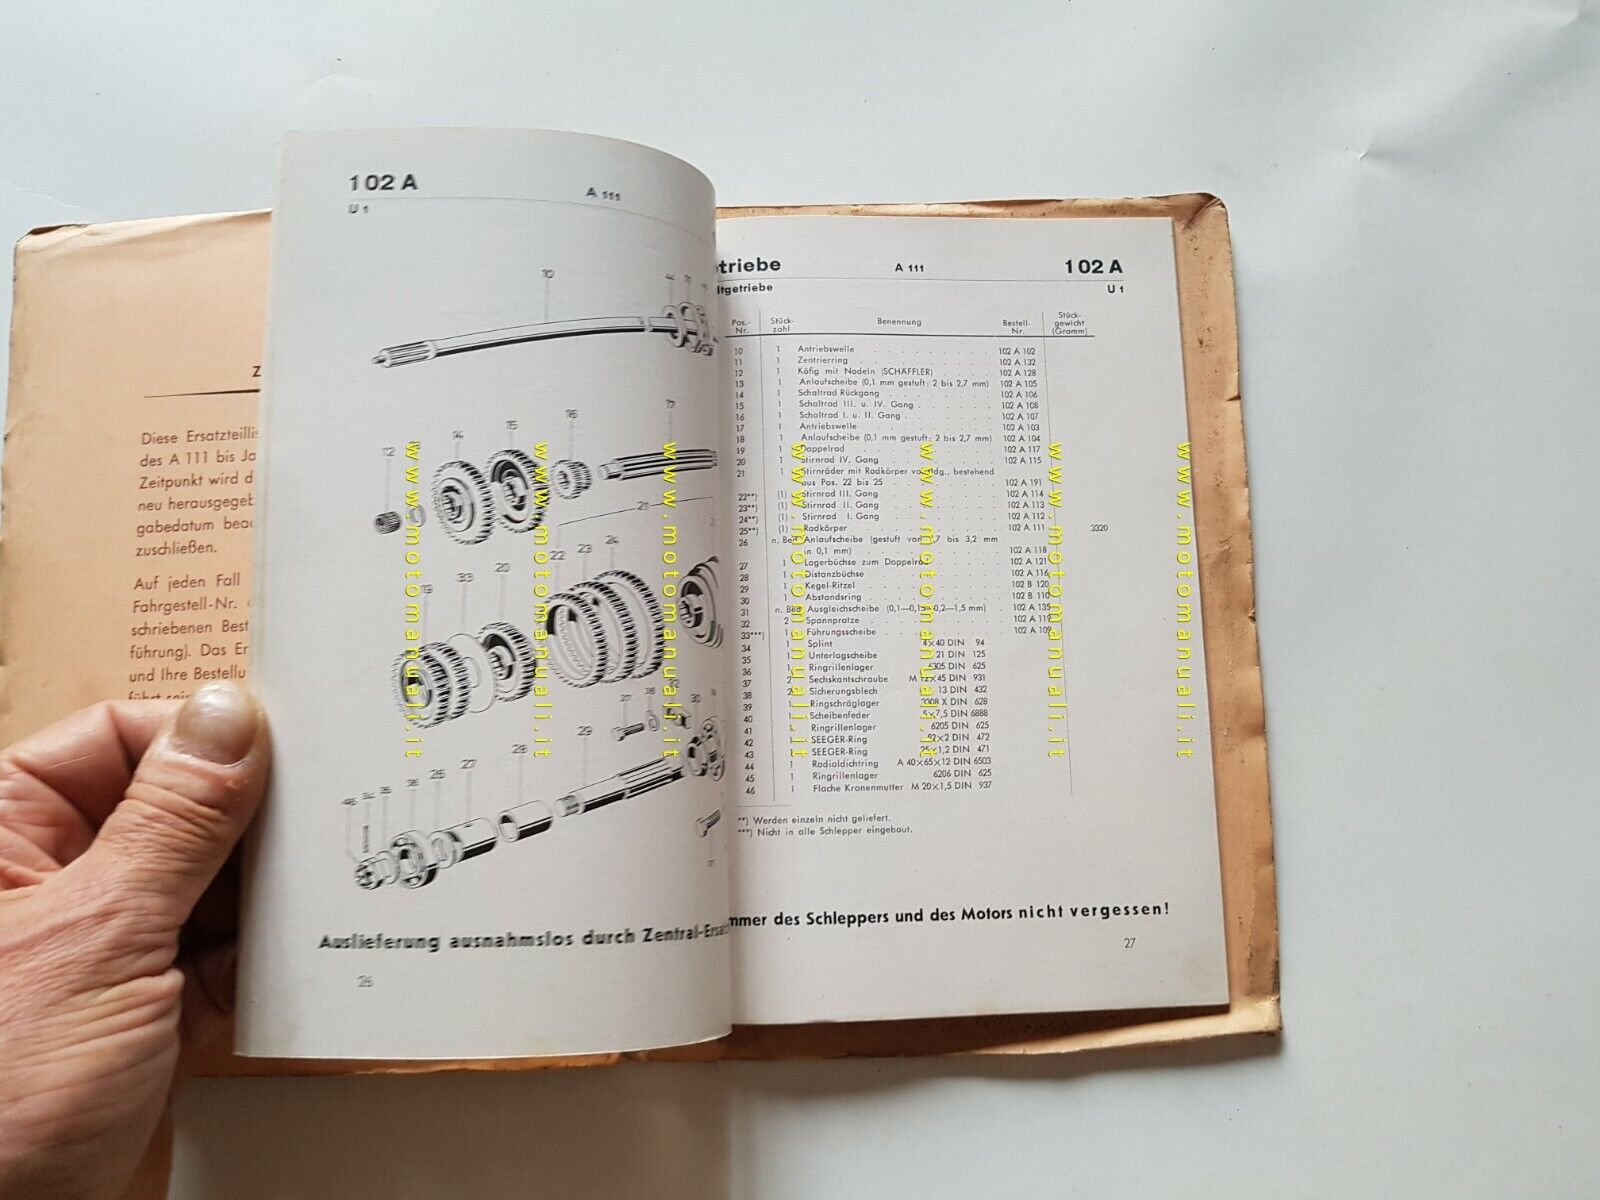 Z
Diese Ersatzteillis
des A 111 bis Ja
Zeitpunkt wird d
neu herausgegeb
gabedatum beac
zuschließen.
Auf jeden Fall
Fahrgestell-Nr.
schriebenen Best
führung). Das Er
und Ihre Bestellu
führt sein
102 A
A 111
U 1
10
44
17
16
15
14
12
21
24
23
22
20
33
19
37
38
30
29
28
27
26
36
35
34
46
Auslieferung ausnahmslos durch Zentral-Ersa
26
triebe A 111 102 A
ltgetriebe U 1
Pos.-Nr. Stück-zahl Benennung Bestell-Nr. Stück-gewicht (Gramm)
10 1 Antriebswelle 102 A 102
11 1 Zentrierring 102 A 132
12 1 Käfig mit Nadeln (SCHÄFFLER) 102 A 128
13 1 Anlaufscheibe (0,1 mm gestuft: 2 bis 2,7 mm) 102 A 105
14 1 Schaltrad Rückgang 102 A 106
15 1 Schaltrad III. u. IV. Gang 102 A 108
16 1 Schaltrad I. u. II. Gang 102 A 107
17 1 Antriebswelle 102 A 103
18 1 Anlaufscheibe (0,1 mm gestuft: 2 bis 2,7 mm) 102 A 104
19 1 Doppelrad 102 A 117
20 1 Stirnrad IV. Gang 102 A 115
21 1 Stirnräder mit Radkörper bestehend
aus Pos. 22 bis 25 102 A 191
22**) (1) Stirnrad III. Gang 102 A 114
23**) (1) Stirnrad II. Gang 102 A 113
24**) (1) Stirnrad I. Gang 102 A 112
25**) (1) Radkörper 102 A 111 3320
26 n. Bed. Anlaufscheibe (gestuft bis 3,2 mm
in 0,1 mm) 102 A 118
27 1 Lagerbüchse zum Doppelrad 102 A 121
28 1 Distanzbüchse 102 A 116
29 1 Kegel-Ritzel 102 B 120
30 1 Abstandsring 102 B 110
31 n. Bed. Ausgleichscheibe (0,1—0,15—0,2—1,5 mm) 102 A 135
32 2 Spannpratze 102 A 119
33***) 1 Führungsscheibe 102 A 109
34 1 Splint 4×40 DIN 94
35 1 Unterlagscheibe 21 DIN 125
36 1 Ringrillenlager 6305 DIN 625
37 2 Sechskantschraube M 12×45 DIN 931
38 2 Sicherungsblech 13 DIN 432
39 1 Ringschräglager 3308 X DIN 628
40 1 Scheibenfeder 5×7,5 DIN 6888
41 1 Ringrillenlager 6205 DIN 625
42 1 SEEGER-Ring 52×2 DIN 472
43 1 SEEGER-Ring 25×1,2 DIN 471
44 1 Radialdichtring A 40×65×12 DIN 6503
45 1 Ringrillenlager 6206 DIN 625
46 1 Flache Kronenmutter M 20×1,5 DIN 937
**) Werden einzeln nicht geliefert.
***) Nicht in alle Schlepper eingebaut.
mmer des Schleppers und des Motors nicht vergessen!
27
www.motomanuali.it
www.motomanuali.it
www.motomanuali.it
www.motomanuali.it
www.motomanuali.it
www.motomanuali.it
www.motomanuali.it